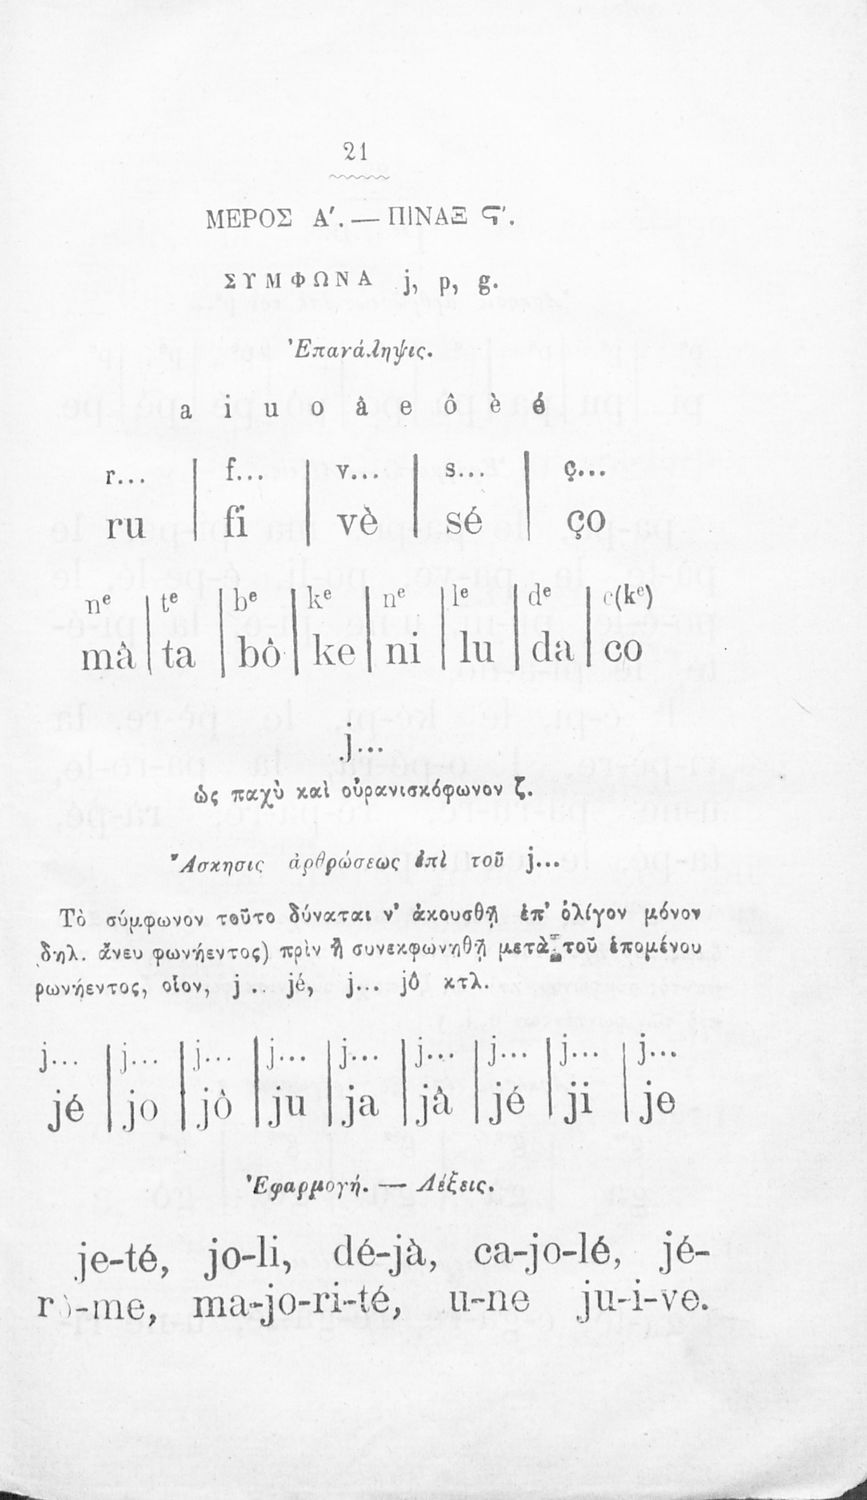 21
ΜΕΡΟΣ Α′. — ΠΙΝΑΞ Ϛ′.
ΣΥΜΦΩΝΑ j, p, g.
Ἐπανάληψις.
a i u o â e ô è é
r... f... v... s... ç...
ru fi vè sé ço
nᵉ tᵉ bᵉ kᵉ nᵉ lᵉ dᵉ c(kᵉ)
mâ ta bô ke ni lu da co
j...
ὡς παχὺ καὶ οὐρανισκόφωνον ζ.
Ἄσκησις ἀρθρώσεως ἐπὶ τοῦ j...
Τὸ σύμφωνον τοῦτο δύναται ν' ἀκουσθῇ ἐπ' ὀλίγον μόνον
δηλ. ἄνευ φωνήεντος) πρὶν ἢ συνεκφωνηθῇ μετὰ τοῦ ἑπομένου
ρωνήεντος, οἷον, j... jé, j... jô κτλ.
j... j... j... j... j... j... j... j... j...
jé jo jô ju ja jâ jé ji je
Ἐφαρμογή. — Λέξεις.
je-té, jo-li, dé-jà, ca-jo-lé, jé-
rô-me, ma-jo-ri-té, u-ne ju-i-ve.